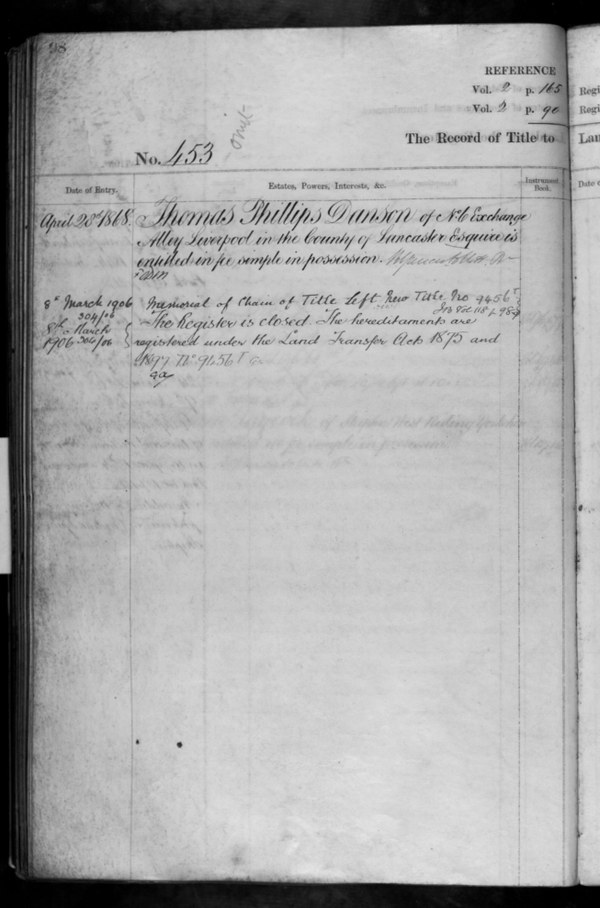 98
REFERENCE
Vol. 2 p. 165
Vol. 2 p. 90
Regi
Regi
omit
No. 453
The Record of Title to
Lan
Date of Entry.
Estates, Powers, Interests, &c.
Instrument Book.
Date o
April 28th 1868.
Thomas Phillips Danson of No. 6 Exchange
Alley Liverpool in the County of Lancaster Esquire is
entitled in fee simple in possession.
8th March 1906
304/06
Memorial of Chain of Title left New Title No 9456
8th March
1906 304/06
The Register is closed. The hereditaments are
registered under the Land Transfer Acts 1875 and
1897 No 9456